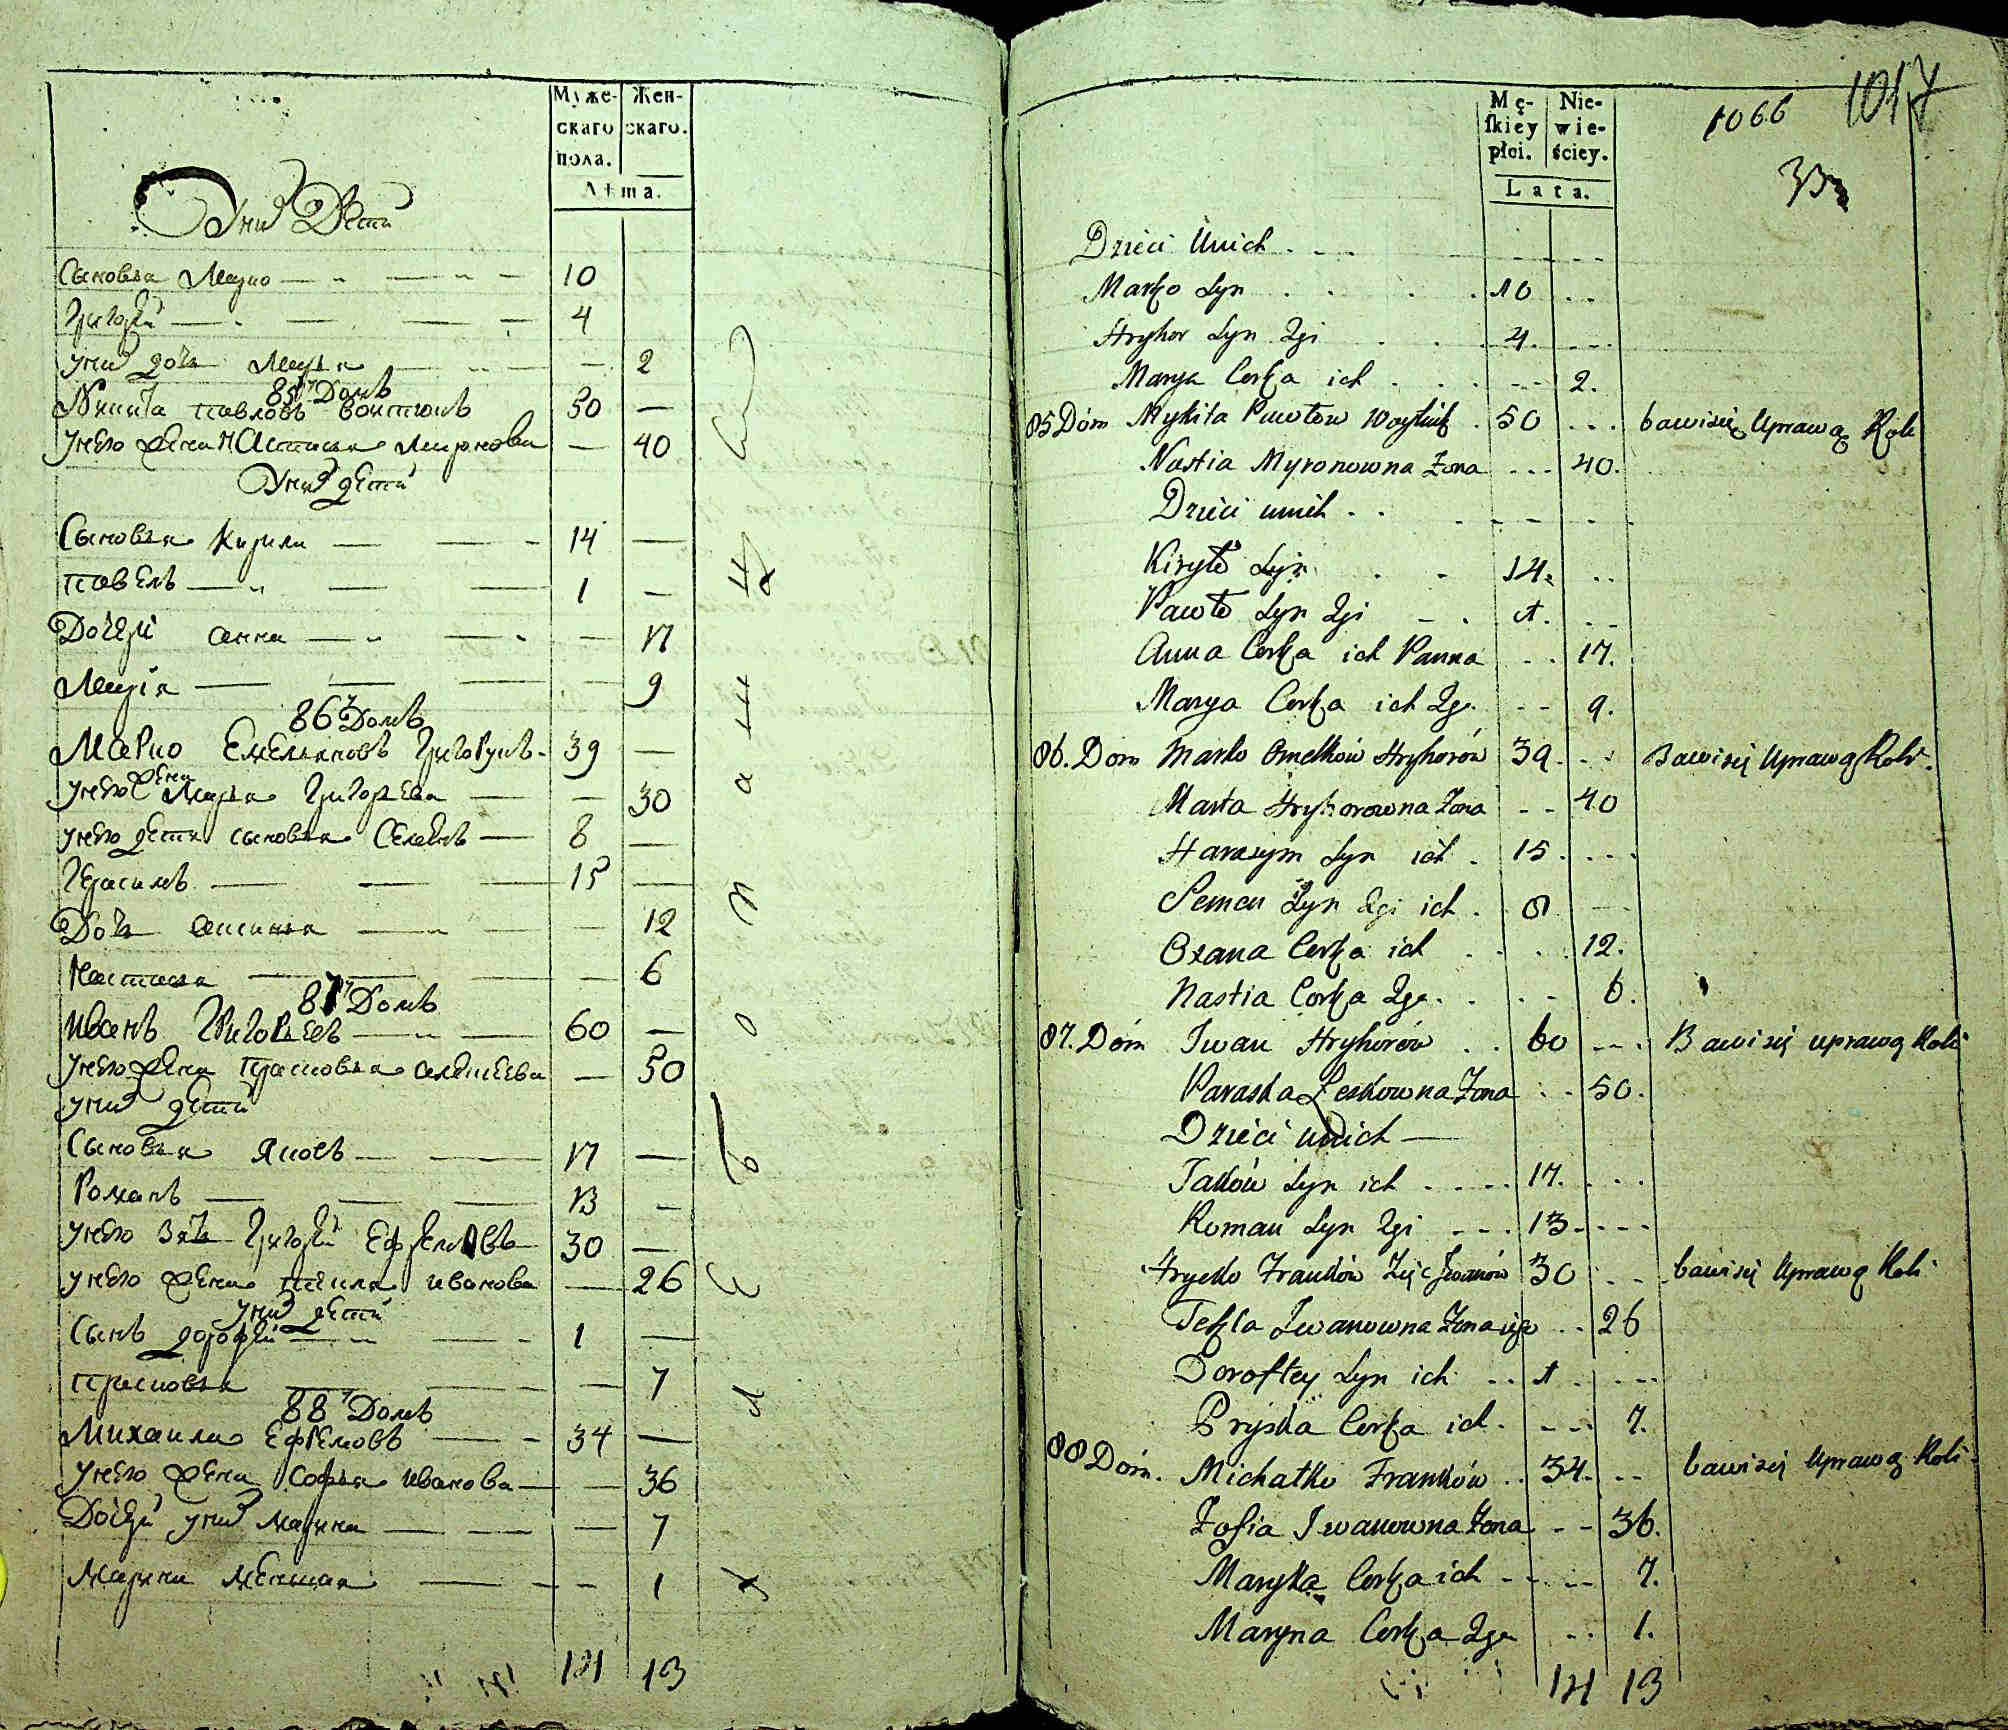 Муже- Жен-
скаго скаго.
пола.
Лѣта.
У них Дѣти
Сыновья Марко 10
Григорій 4
у них дочь Марья 2
85й Домъ
Никита павловъ воитюкъ 50
у него жена Настасья Миронова 40
У них дѣти
Сыновья Кирила 14
павелъ 1
Дочери анна 17
Марія 9
86й Домъ
Марко Емельяновъ Григорукъ 39
у него жена Марья Григорьева 30
у него дети сыновья Семенъ 8
Герасимъ 15
Дочь аксинья 12
Настасья 6
87й Домъ
Иванъ Григорьевъ 60
у него жена Прасковья алексеева 50
у них дети
Сыновья Яковъ 17
Романъ 13
у него зять Григорій Ефремовъ 30
у него жена текла иванова 26
у них дети
Сынъ дорофей 1
прасковья 7
88й Домъ
Михаила Ефремовъ 34
у него жена Софья иванова 36
Дочери у них Марина 7
Марина меншая 1
14 13
хлебопашец
Mę- Nie-
ſkiey wie-
płci. ściey.
Lata.
1066 1017
33
Dzieci Unich
Marko Syn 10
Hryhor Syn 2gi 4.
Marya Corka ich 2.
85 Dóm Mykita Pawłow Woytiuk 50 bawisię Uprawą Roli
Nastia Myronowna Zona 40.
Dzieci unich
Kiryło Syn 14.
Pawło Syn 2gi 1.
Anna Corka ich Panna 17.
Marya Corka ich 2ga 9.
86. Dom Marko Omelków Hryhorów 39 Bawisię Uprawą Roli.
Marta Hryhorowna Zona 40
Harasym Syn ich 15
Semen Syn 2gi ich 8
Oxana Corka ich 12.
Nastia Corka 2ga 6.
87. Dóm Iwan Hryhorów 60 Bawisię uprawą Roli
Paraska Leskowna Zona 50.
Dzieci unich
Jaków Syn ich 17.
Roman Syn 2gi 13
Hrycko Franków Zięć Iwanów 30 bawisię Uprawą Roli
Tekla Iwanowna Zona iego 26
Doroftey Syn ich 1
Pryska Corka ich 7.
88 Dóm. Michałko Franków 34 bawisię Uprawą Roli
Zofia Iwanowna Zona 36.
Maryna Corka ich 7.
Maryna Corka 2ga 1.
14 13